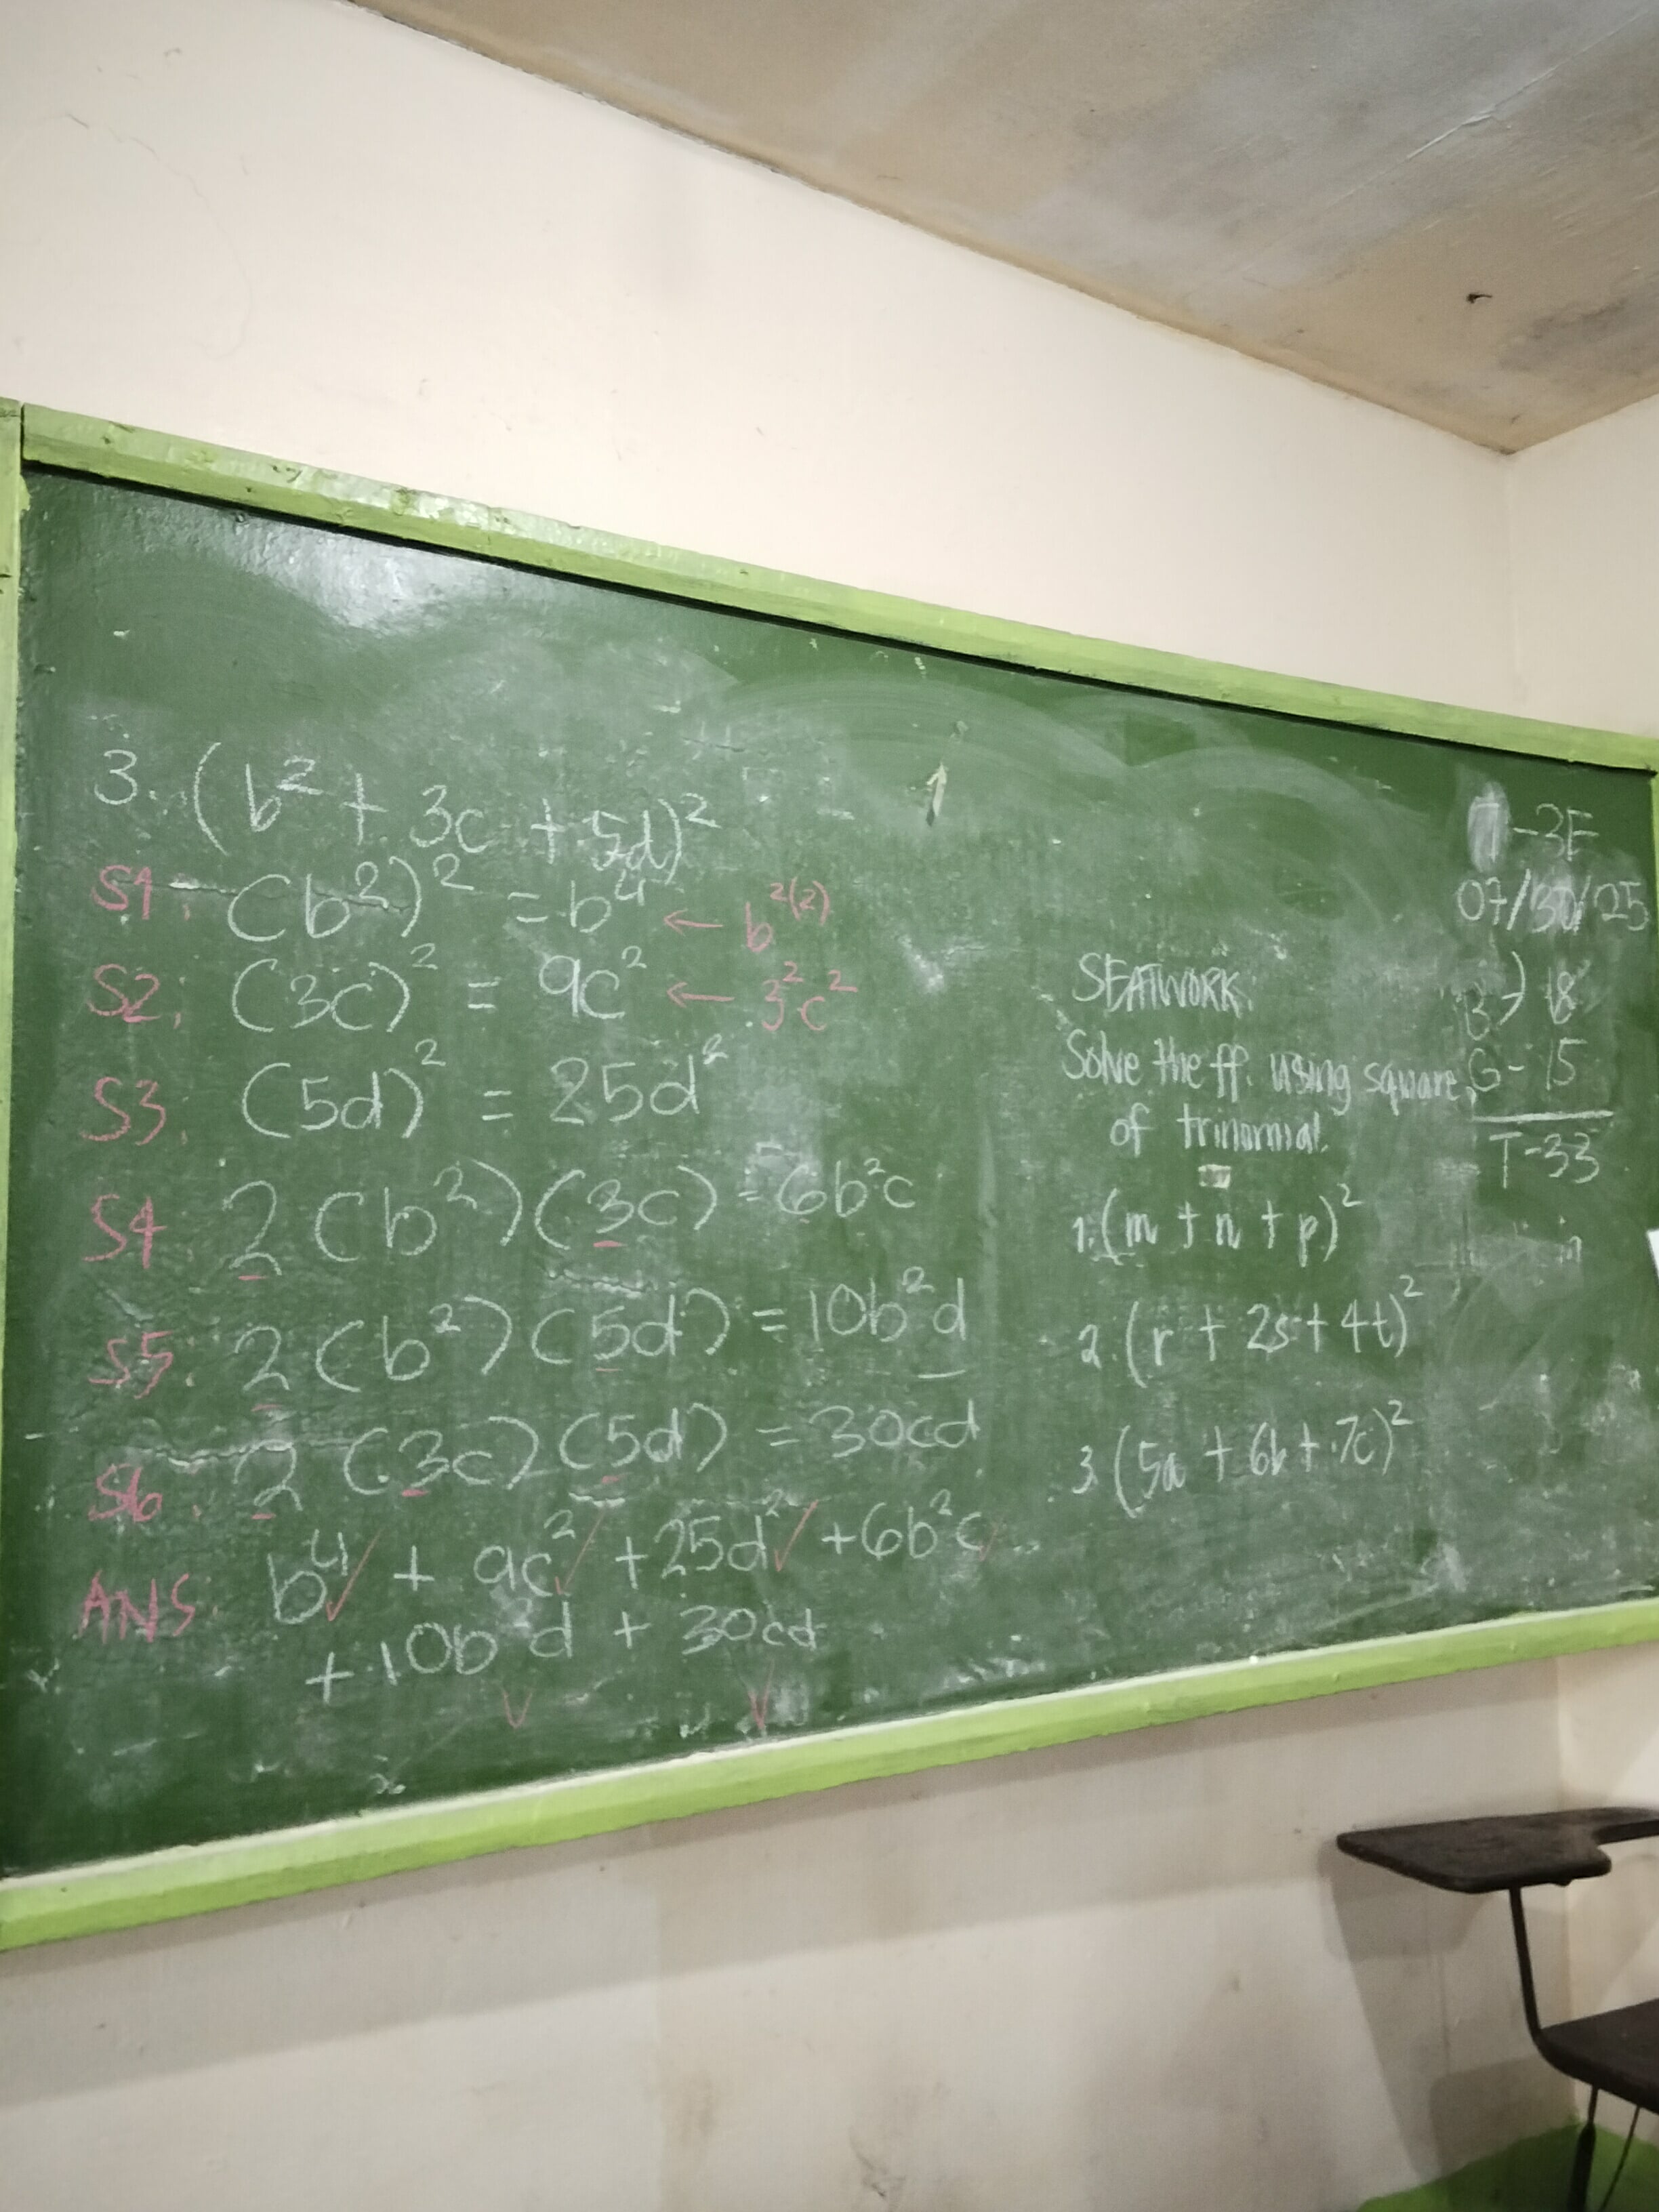 3. (b² + 3c + 5d)²
S1. (b²)² = b⁴ ← b²⁽²⁾
S2. (3c)² = 9c² ← 3²c²
S3. (5d)² = 25d²
S4 2(b²)(3c) = 6b²c
S5. 2(b²)(5d) = 10b²d
S6. 2(3c)(5d) = 30cd
ANS. b⁴✓ + 9c²✓ + 25d²✓ + 6b²c✓
+ 10b²d + 30cd
✓ ✓
SEATWORK:
Solve the ff. using square
of trinomial.
1. (m + n + p)²
2. (r + 2s + 4t)²
3. (5a + 6b + 7c)²
-3E
07/30/25
B - 18
G - 15
T - 33